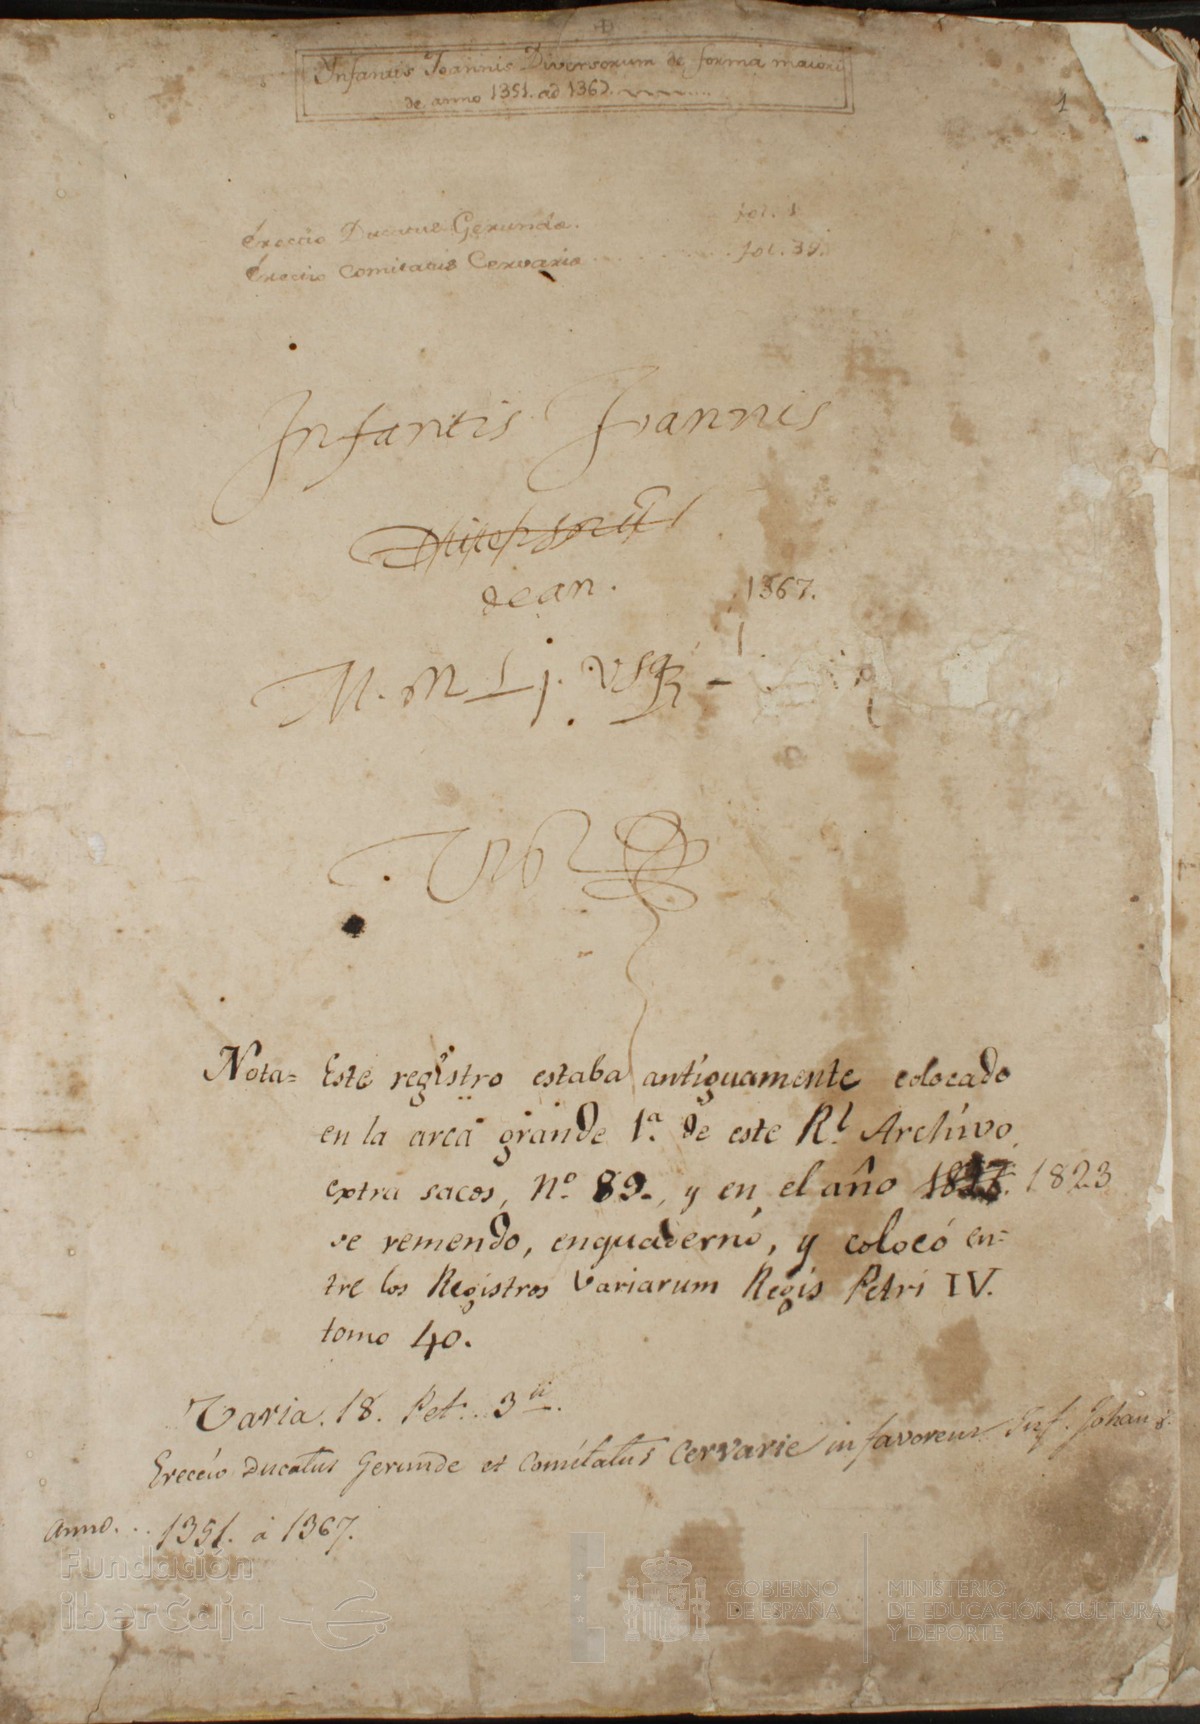 Infantis Joannis Diversorum de forma maiori
de anno 1351. ad 1367.
1
Ereccio Ducatus Gerunde. fol. 1
Ereccio Comitatus Cervarie fol. 39.
Infantis Joannis
de an. 1367.
Nota= Este registro estaba antiguamente colocado
en la arca grande 1ª. de este Rl. Archivo,
extra sacos, Nº 89., y en el año 1823
se remendo, enquadernó, y colocó en=
tre los Registros Variarum Regis Petri IV.
tomo 40.
Varia. 18. Pet. 3ii.
Ereccio Ducatus Gerunde et Comitatus Cervarie in favorem Inf. Johan
Anno... 1351. á 1367.
Fundación
iberCaja
GOBIERNO
DE ESPAÑA
MINISTERIO
DE EDUCACIÓN, CULTURA
Y DEPORTE